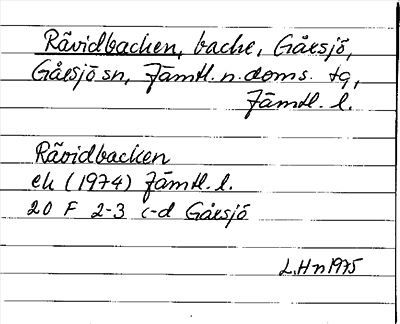 Råvidbacken, backe, Gåxsjö,
Gåxsjö sn, Jämtl. n. doms. tg,
Jämtl. l.
Råvidbacken
ek (1974) Jämtl. l.
20 F 2-3 c-d Gåxsjö
L.Hn 1975